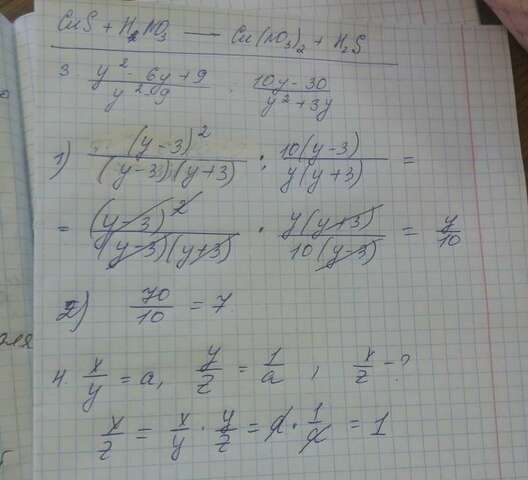 CuS + H₂NO₃ — Cu(NO₃)₂ + H₂S
3. (y² - 6y + 9)/(y² - 9) : (10y - 30)/(y² + 3y)
1) (y-3)²/((y-3)(y+3)) : 10(y-3)/(y(y+3)) =
= (y-3)²/((y-3)(y+3)) · y(y+3)/(10(y-3)) = y/10
2) 70/10 = 7
4. x/y = a, y/z = 1/a, x/z - ?
x/z = x/y · y/z = a · 1/a = 1